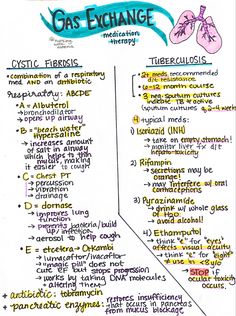 GAS EXCHANGE
medication
therapy
CYSTIC FIBROSIS
• combination of a respiratory
med AND an antibiotic
respiratory: ABCDE
• A = Albuterol
→ bronchodilator
→ opens up airway
• B = "beach water"
Hypersaline
→ increases amount
of salt in airway
which helps to thin
mucus, making it
easier to cough
• C = chest PT
→ percussion
→ vibration
→ drainage
• D = dornase
→ improves lung
function
→ prevents bacteria/build
up/infection
→ aerosol to help cough
• E = etcetera - Orkambi
→ lumacaftor/ivacaftor
→ "magic pill" does not
cure CF but stops progression
→ works by taking DNA molecules
+ altering them
+ antibiotic: tobramycin
+ pancreatic enzymes:
restores insufficiency
that occurs in pancreas
from mucus blockage
TUBERCULOSIS
• 2+ meds recommended
d/t resistance
• 6-12 month course
• 3 neg. sputum cultures
indicate TB inactive
(sputum cultures q 2-4 weeks)
4 typical meds:
1) Isoniazid (INH)
→ take on empty stomach!
→ monitor liver d/t
hepatotoxicity
2) Rifampin
→ secretions may be
orange!
→ may interfere w/ oral
contraceptives
3) Pyrazinamide
→ drink w/ whole glass
of H2O
→ avoid alcohol!
4) Ethambutol
→ think "e" for "eyes"
affects visual acuity
→ think "e" for "eight"
∅ use in <8y/o
STOP if
ocular toxicity
occurs.